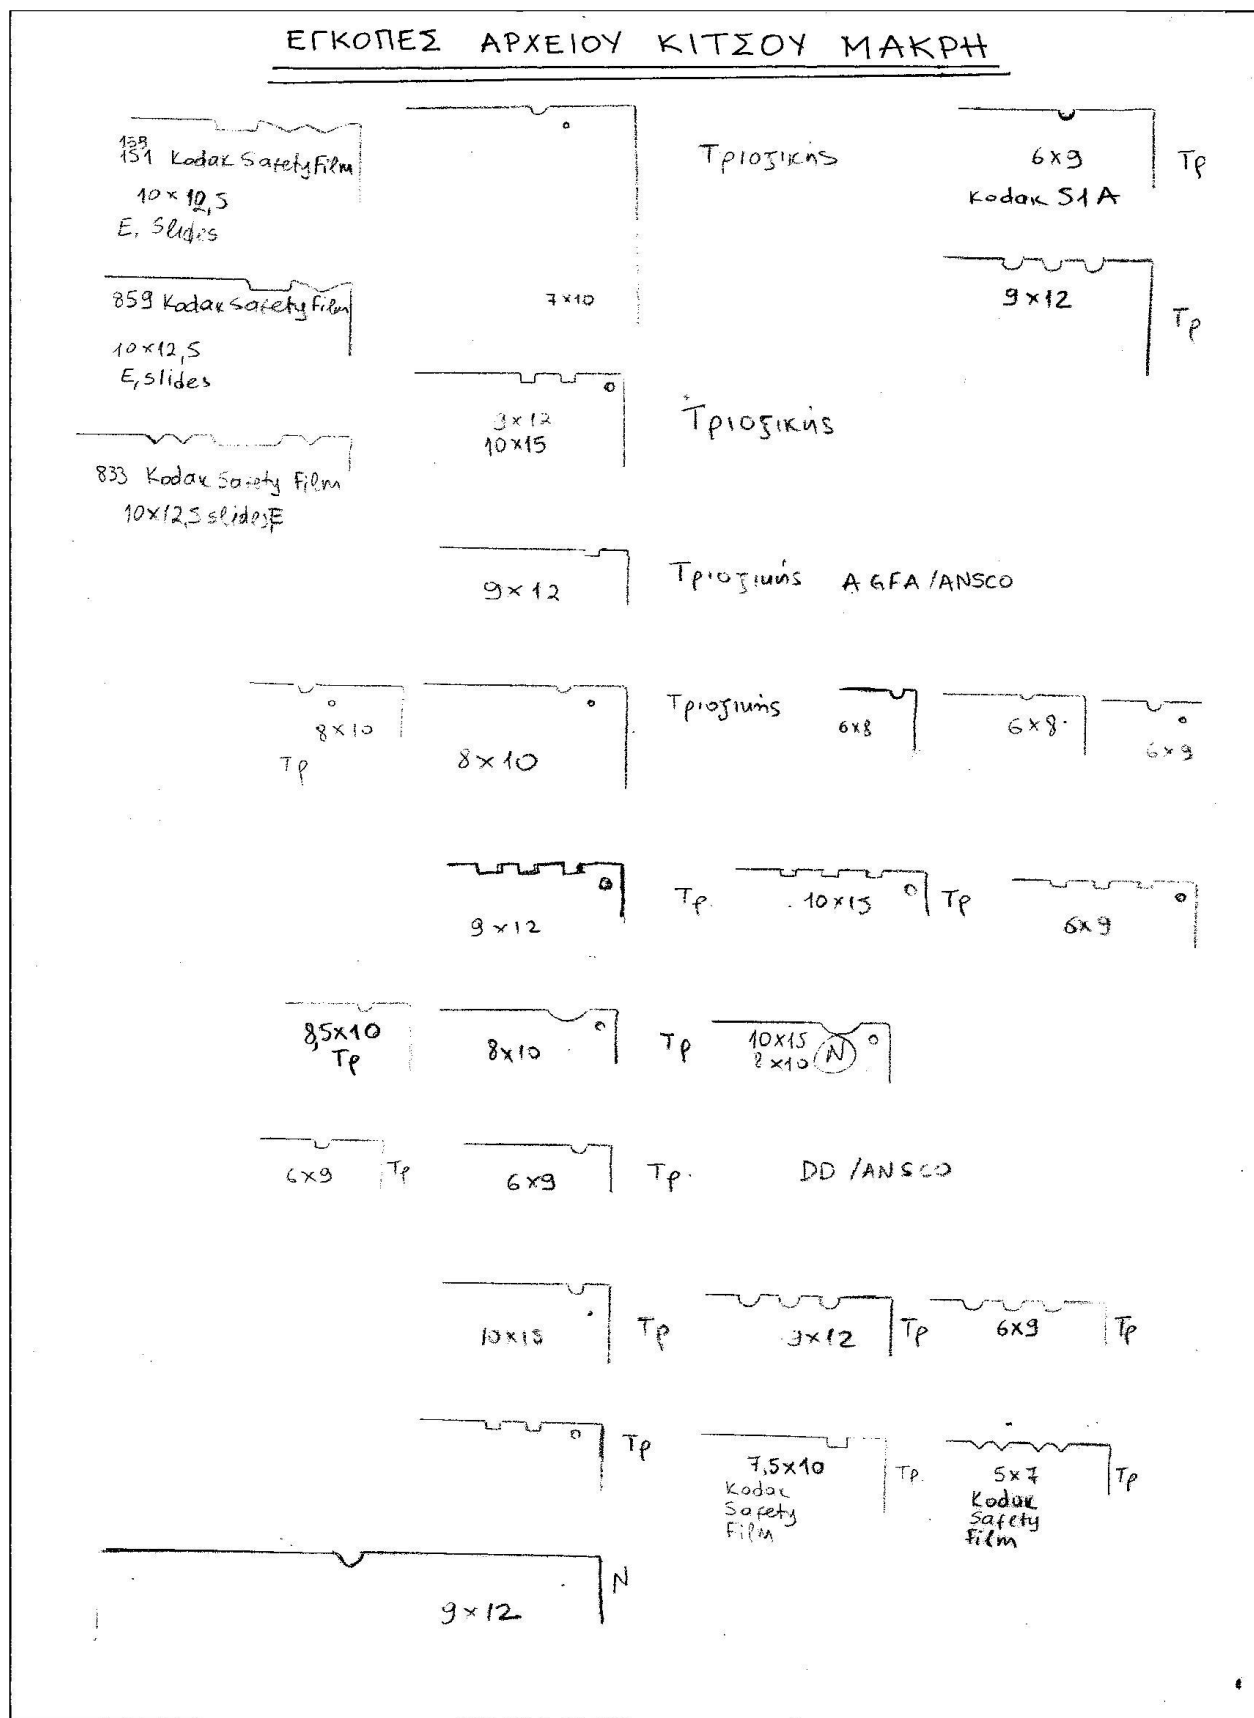 ΕΓΚΟΠΕΣ ΑΡΧΕΙΟΥ ΚΙΤΣΟΥ ΜΑΚΡΗ
159
151 Kodak Safety Film
10×12,5
E, Slides
7×10
Τριοξικής
6×9
Kodak S1A
Τρ
859 Kodak Safety Film
10×12,5
E, slides
9×12
Τρ
9×12
10×15
Τριοξικής
833 Kodak Safety Film
10×12,5 slides, E
9×12
Τριοξικής AGFA/ANSCO
8×10
Τρ
8×10
Τριοξικής
6×8
6×8
6×9
9×12
Τρ.
10×15
Τρ
6×9
8,5×10
Τρ
8×10
Τρ
10×15
8×10 N
6×9 Τρ
6×9
Τρ. DD/ANSCO
10×15
Τρ
9×12
Τρ
6×9
Τρ
Τρ
7,5×10
Kodak
Safety
Film
Τρ.
5×7
Kodak
Safety
Film
Τρ
9×12
N